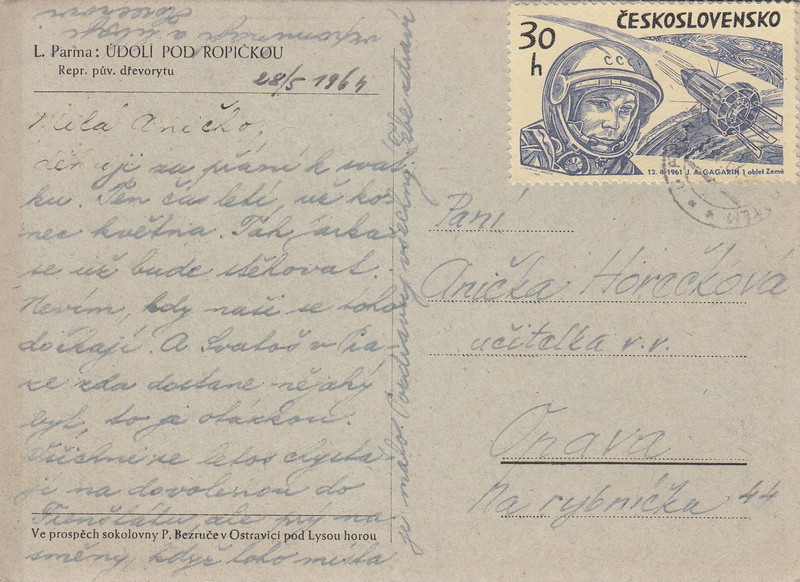 L. Parma: ÚDOLÍ POD ROPIČKOU
Repr. pův. dřevorytu
28/5 1964
Milá Aničko,
děkuji za přání k svát-
ku. Ten čas letí, už ko-
nec května. Tak Jarka
se už bude stěhovat.
Nevím, kdy naši se toho
dočkají. A Svatoš v Pra-
ze zda dostane nějaký
byt, to je otázkou.
Všichni se letos chysta-
jí na dovolenou do
Frenštátu, ale prý na
směny, když toho místa
je málo. Pozdravuj všechny.
vzpomínají a
Ve prospěch sokolovny P. Bezruče v Ostravici pod Lysou horou
ČESKOSLOVENSKO
30 h
CCCP
12. 4. 1961 J. A. GAGARIN 1 oblet Země
Paní
Anička Horečková
učitelka v.v.
Na rybníčku 44